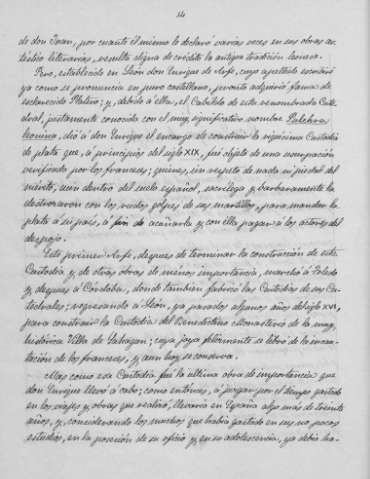 14
de don Juan, por cuanto él mismo lo declaró varias veces en sus obras ar-
tístico literarias, resulta digna de crédito la antigua tradición leonesa.
Pero, establecido en León don Enrique de Arfe, cuyo apellido escribiré
ya como se pronuncia en puro castellano, pronto adquirió fama de
esclarecido Platero; y, debido a ella, el Cabildo de esta renombrada Cate-
dral, justamente conocida con el muy significativo nombre Pulchra
leonina, dió a don Enrique el encargo de construir la riquísima Custodia
de plata que, a principios del siglo XIX, fué objeto de una
verificada por los franceses; quienes, sin respeto de nada ni piedad del
mérito, aún dentro del suelo español, sacrílega y bárbaramente la
destrozaron con los rudos golpes de sus martillos, para mandar la
plata a su país, a fin de acuñarla y con ella pagar a los actores del
despojo.
Este primer Arfe, después de terminar la construcción de esta
Custodia y de otras obras de menos importancia, marchó a Toledo
y después a Córdoba, donde también fabricó las Custodias de sus Ca-
tedrales; regresando a León, ya pasados algunos años del siglo XVI,
para construir la Custodia del Benedictino Monasterio de la muy
histórica Villa de Sahagún; cuya joya felizmente se libró de la incau-
tación de los franceses, y aun hoy se conserva.
Mas como esa Custodia fué la última obra de importancia que
don Enrique llevó a cabo; como entonces, a juzgar por el tiempo gastado
en los viajes y obras que realizó, llevaría en España algo más de treinta
años, y, considerando los muchos que habría gastado en sus no pocos
estudios, en la posesión de su oficio y en su adolescencia, ya debía ha-